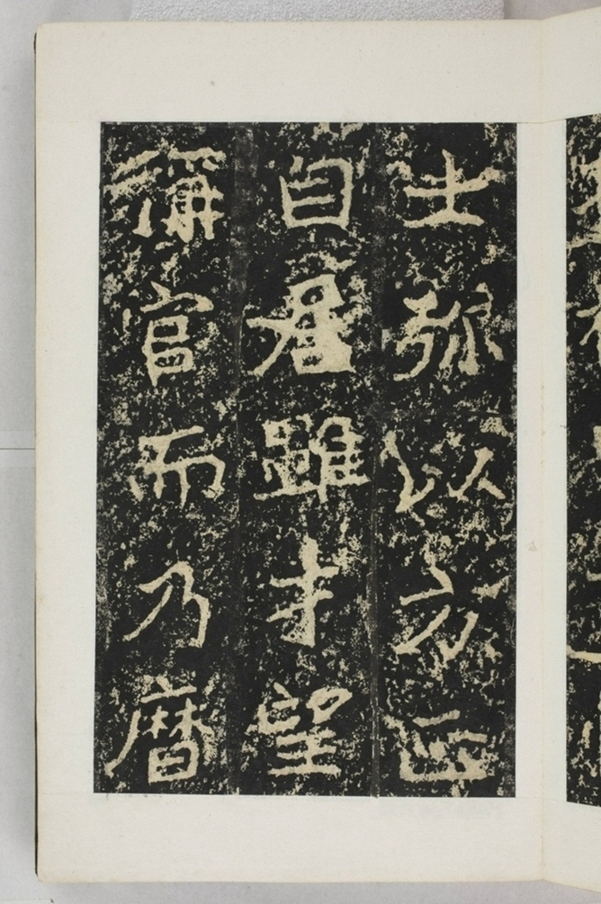 士弥以方正
自居雖才望
稱官而乃曆